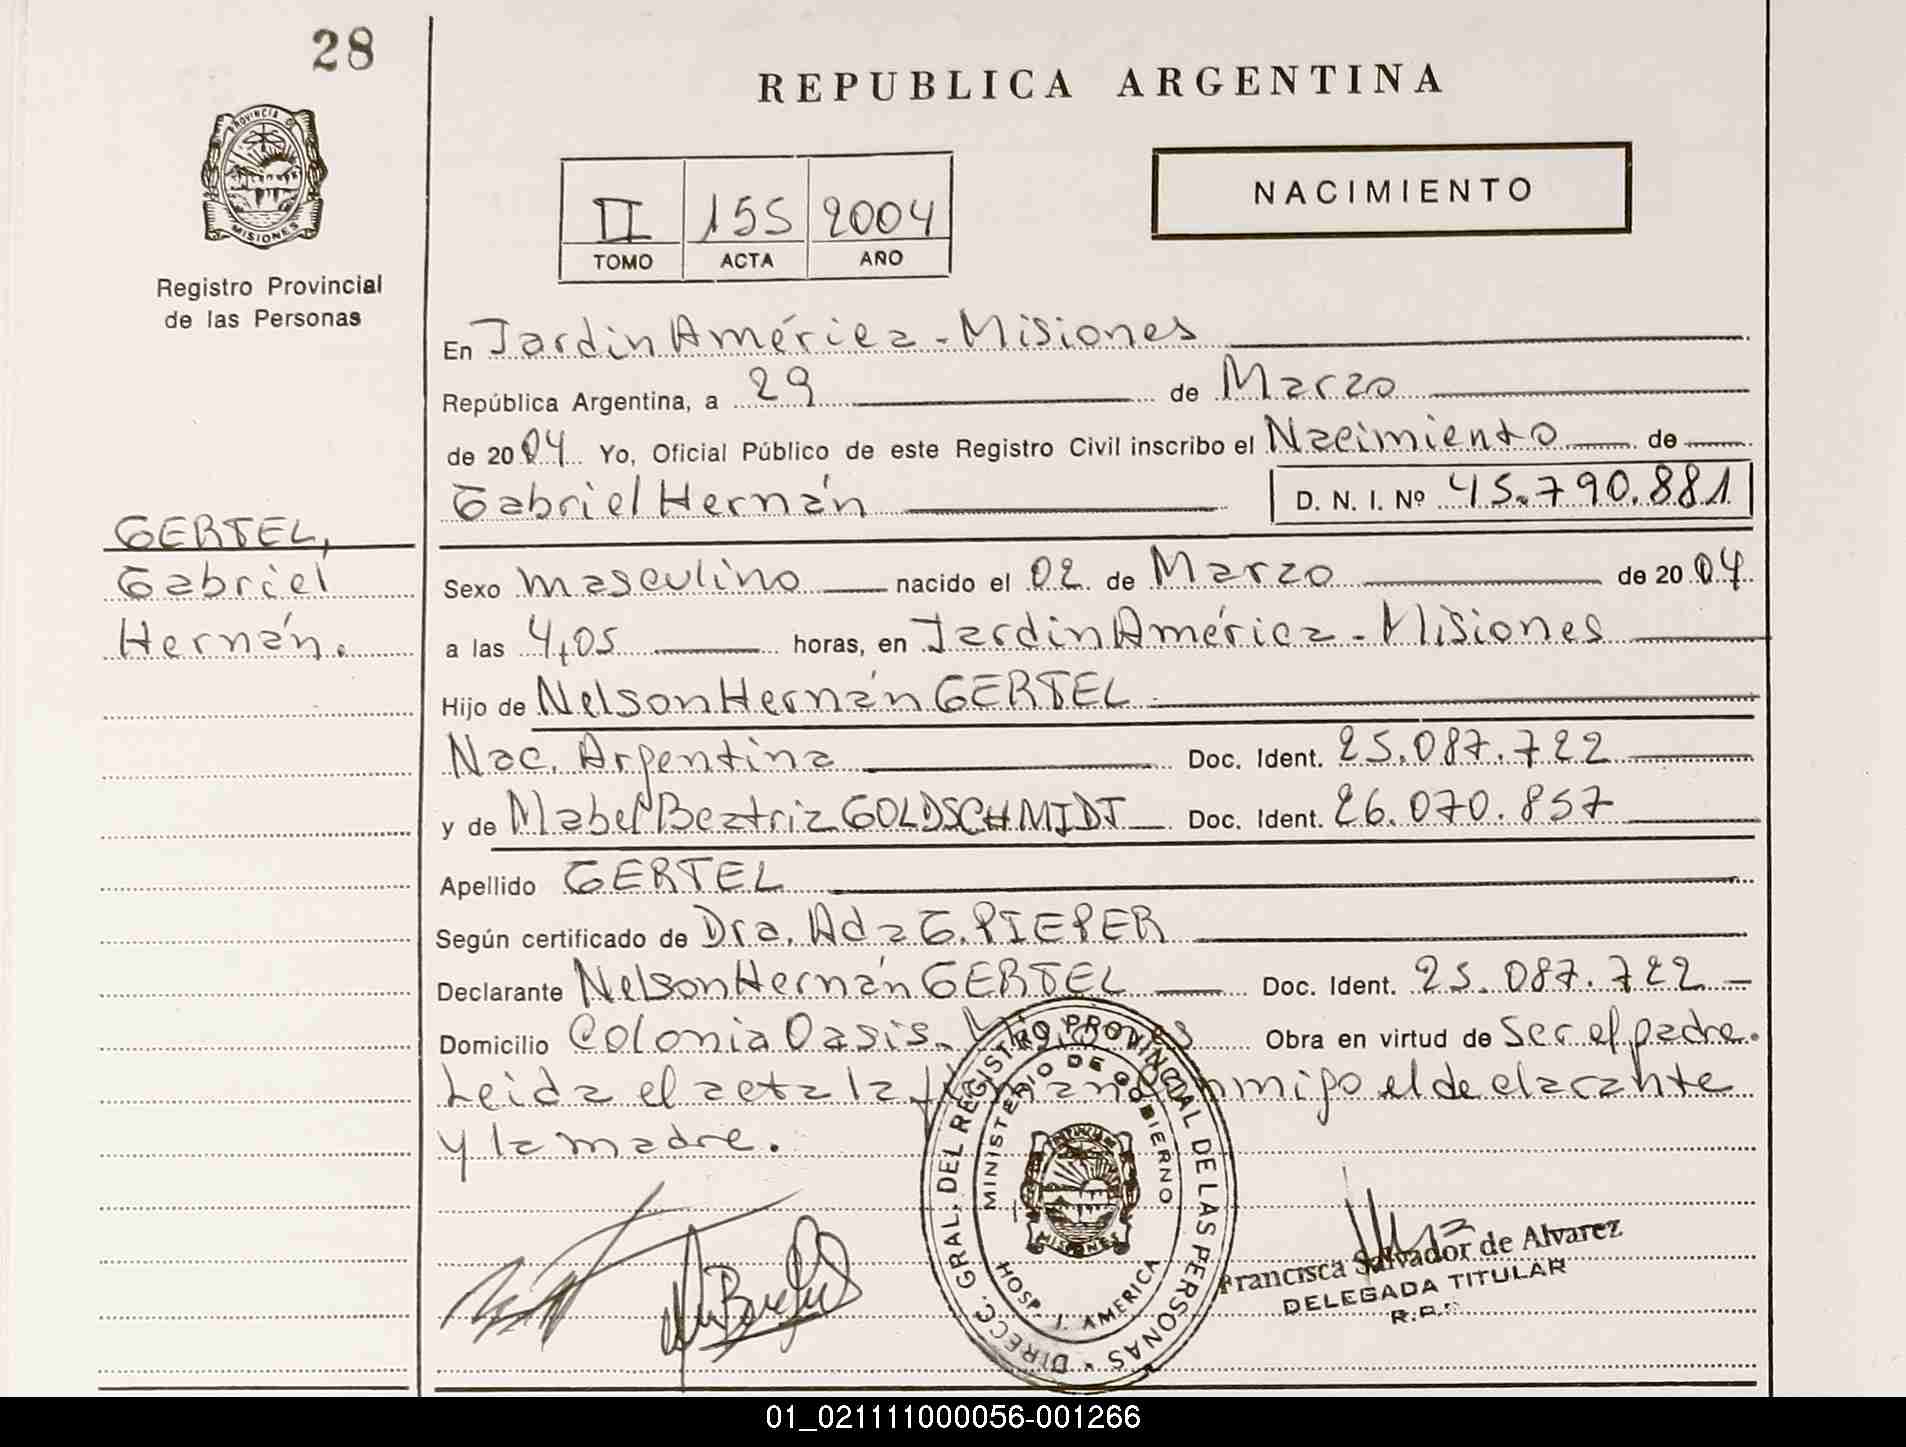 28
REPUBLICA ARGENTINA
PROVINCIA D
MISIONES
Registro Provincial
de las Personas
II 155 2004
TOMO ACTA AÑO
NACIMIENTO
En Jardin América - Misiones
República Argentina, a 29 de Marzo
de 2004 Yo, Oficial Público de este Registro Civil inscribo el Nacimiento de
Gabriel Hernán D. N. I. Nº 45.790.881
GERTEL,
Gabriel
Hernán.
Sexo masculino nacido el 02 de Marzo de 2004
a las 4,05 horas, en Jardin América - Misiones
Hijo de Nelson Hernán GERTEL
Nac. Argentina Doc. Ident. 25.087.722
y de Mabel Beatriz GOLDSCHMIDT Doc. Ident. 26.070.857
Apellido GERTEL
Según certificado de Dra. Ada G. PIEPER
Declarante Nelson Hernán GERTEL Doc. Ident. 25.087.722
Domicilio Colonia Oasis. Obra en virtud de Ser el padre.
Leida el acta la firman conmigo el declarante
y la madre.
DIRECC. GRAL. DEL REGISTRO PROVINCIAL DE LAS PERSONAS
MINISTERIO DE GOBIERNO
MISIONES
HOSP. J. AMERICA
Francisca Salvador de Alvarez
DELEGADA TITULAR
01_021111000056-001266